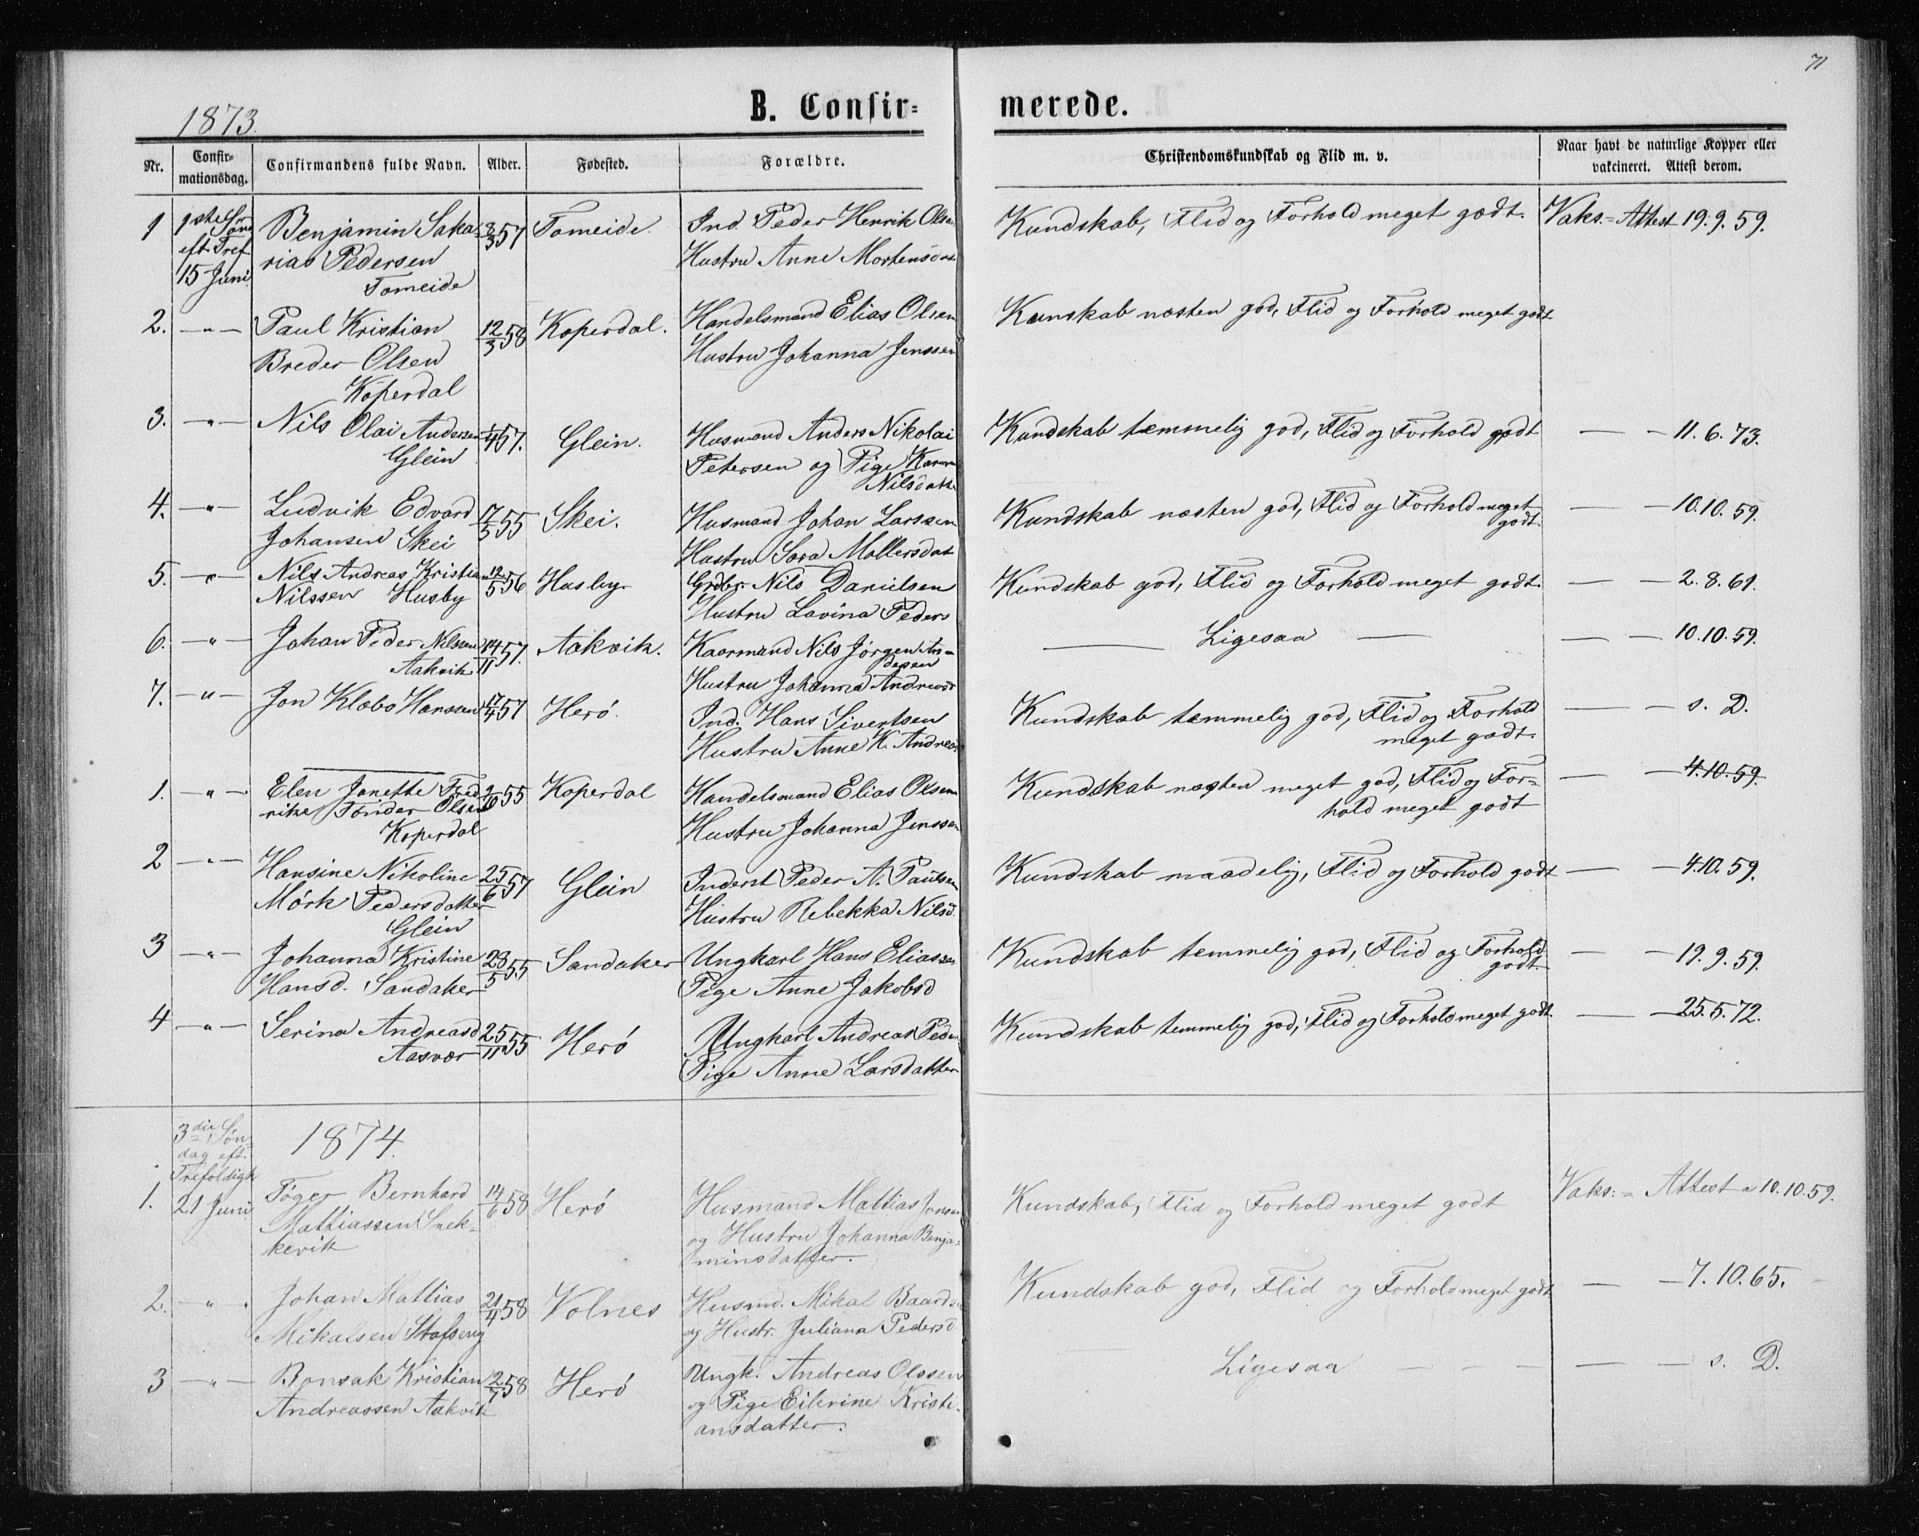 71
1873.
B. Confir-
merede.
Nr.
Confir-
mationsdag.
Confirmandens fulde Navn.
Alder.
Fødested.
Forældre.
Christendomskundskab og Flid m. v.
Naar havt de naturlige Kopper eller
vakcineret. Attest derom.
1 1ste Søn Benjamin Saka- 8/3 57 Tomeide. Ind. Peder Henrik Olsen Kundskab, Flid og Forhold meget godt. Vaks.=Attest 19.9.59.
eft. Tref rias Pedersen Hustru Anne Mortensdat
15 Juni Tomeide
2. -"- Paul Kristian 12/3 58 Koperdal. Handelsmand Elias Olsen Kunskab næsten god, Flid og Forhold meget godt
Breder Olsen Hustru Johanna Jenssen
Koperdal
3. -"- Nils Olai Andersen 1/4 57. Glein. Husmand Anders Nikolai Kundskab temmelig god, Flid og Forhold godt — — 11.6.73.
Glein Petersen og Pige Karen
Nilsdatt
4. -"- Ludvik Edvard 17/5 55 Skei. Husmand Johan Larssen Kundskab næsten god, Flid og Forhold meget — — 10.10.59.
godt.
Johansen Skei Hustru Sara Mollersdat
5. -"- Nils Andreas Kristian 12/5 56 Husby Grdbr. Nils Danielsen Kundskab god, Flid og Forhold meget godt. — — 2.8.61.
Nilssen Husby Hustru Lavina Peders
6. -"- Johan Peder Nilssen 14/11 57. Aakvik. Kaarmand Nils Jørgen An- — Ligesaa — — — 10.10.59.
Aakvik dersen
Hustru Johanna Andreasd
7. -"- Jon Klæbo Hanssen 17/4 57 Herö. Ind. Hans Sivertsen Kundskab temmelig god, Flid og Forhold — — s. D.
meget godt.
Hustru Anne K. Andreas
1. -"- Elen Janette Fred 2/10 55 Koperdal Handelsmand Elias Olsen Kundskab næsten meget god, Flid og For- — — 4.10.59.
rike Tønder Olsen hold meget godt
Koperdal Hustru Johanna Jenssen
2 -"- Hansine Nikoline 25/6 57 Glein Inderst Peder A. Paulsen Kundskab maadelig, Flid og Forhold godt — — 4.10.59.
Mörk Pedersdatter Hustru Rebekka Nilsd.
Glein
3 -"- Johanna Kristine 28/5 55 Sandaker Ungkarl Hans Eliassen Kundskab temmelig god, Flid og Forhold — — 19.9.59.
godt.
Hansd. Sandaker Pige Anne Jakobsd
4 -"- Serina Andreasd 25/11 55 Herö Ungkarl Andreas Peder Kundskab temmelig god, Flid og Forhold meget godt. — — 25.5.72.
Aasvær Pige Anne Larsdatter
3die Søn- 1874.
dag eft.
Trefoldigh
1. 21 Juni Töger Bernhard 14/6 58 Herö Husmand Mattias Kundskab, Flid og Forhold meget godt Vaks.=Attest 10.10.59.
Mattiassen Snek- og Hustru Johanna Benja-
kevik minsdatter.
2. -"- Johan Mattias 21/4 58 Volnes Husmd. Mikal Baards Kundskab god, Flid og Forhold meget godt — — 7.10.65.
Mikalsen Stafseng og Hustr. Juliana Pedersd.
3 -"- Bonsak Kristian 2/7 58 Herö Ungk. Andreas Olssen — Ligesaa — — — — s. D.
Andreassen Aakvik og Pige Eilerine Kristi-
ansdatter.